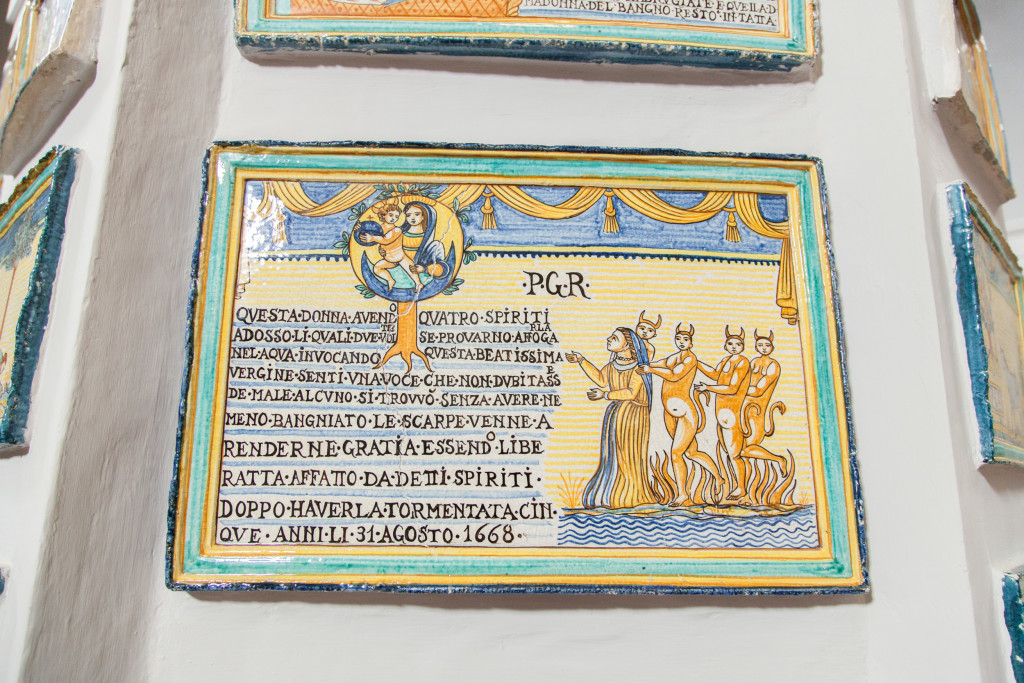 MADONNA·DEL·BANGHO·RESTO·IN·TATA
·P·G·R·
QVESTA·DONNA·AVENDO QVATRO·SPIRITI
ADOSSO·LI·QVALI·DVE·VOLTE SE·PROVARNO·AFOGARLA
NEL·AQVA·INVOCANDO QVESTA·BEATISSIMA
VERGINE·SENTI·VNA·VOCE·CHE·NON·DVBITASSE
DE·MALE·ALCVNO·SI·TROVVÒ·SENZA·AVERE·NE
MENO·BANGNIATO·LE·SCARPE·VENNE·A
RENDERNE·GRATIA·ESSENDO·LIBE
RATTA·AFFATTO·DA·DETTI·SPIRITI·
DOPPO·HAVERLA·TORMENTATA·CIN·
QVE·ANNI·LI·31·AGOSTO·1668·